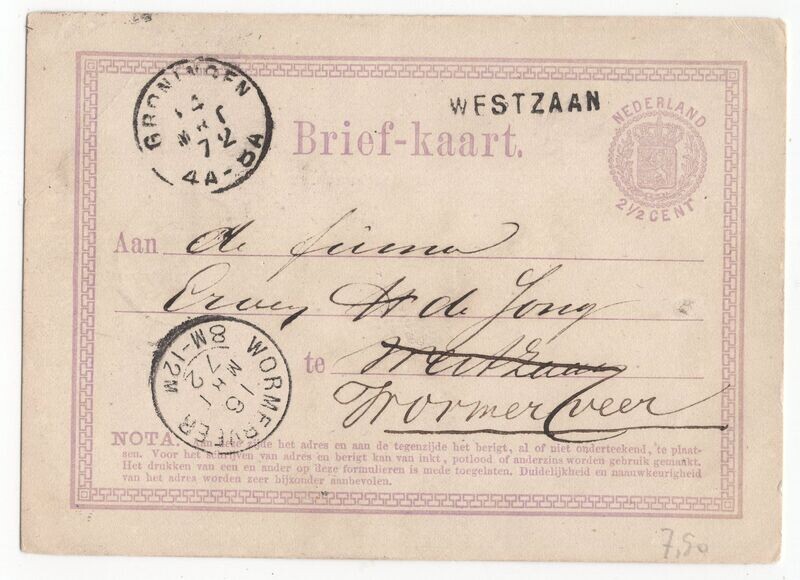 GRONINGEN
14
MRT
72
4A-8A
WESTZAAN
NEDERLAND
2½ CENT
Brief-kaart.
Aan de firma
Erven H de Jong
te Westzaan
Wormerveer
WORMERVEER
16
MRT
72
8M-12M
NOTA. Aan deze zijde het adres en aan de tegenzijde het berigt, al of niet onderteekend, te plaat-
sen. Voor het schrijven van adres en berigt kan van inkt, potlood of anderzins worden gebruik gemaakt.
Het drukken van een en ander op deze formulieren is mede toegelaten. Duidelijkheid en naauwkeurigheid
van het adres worden zeer bijzonder aanbevolen.
7,50